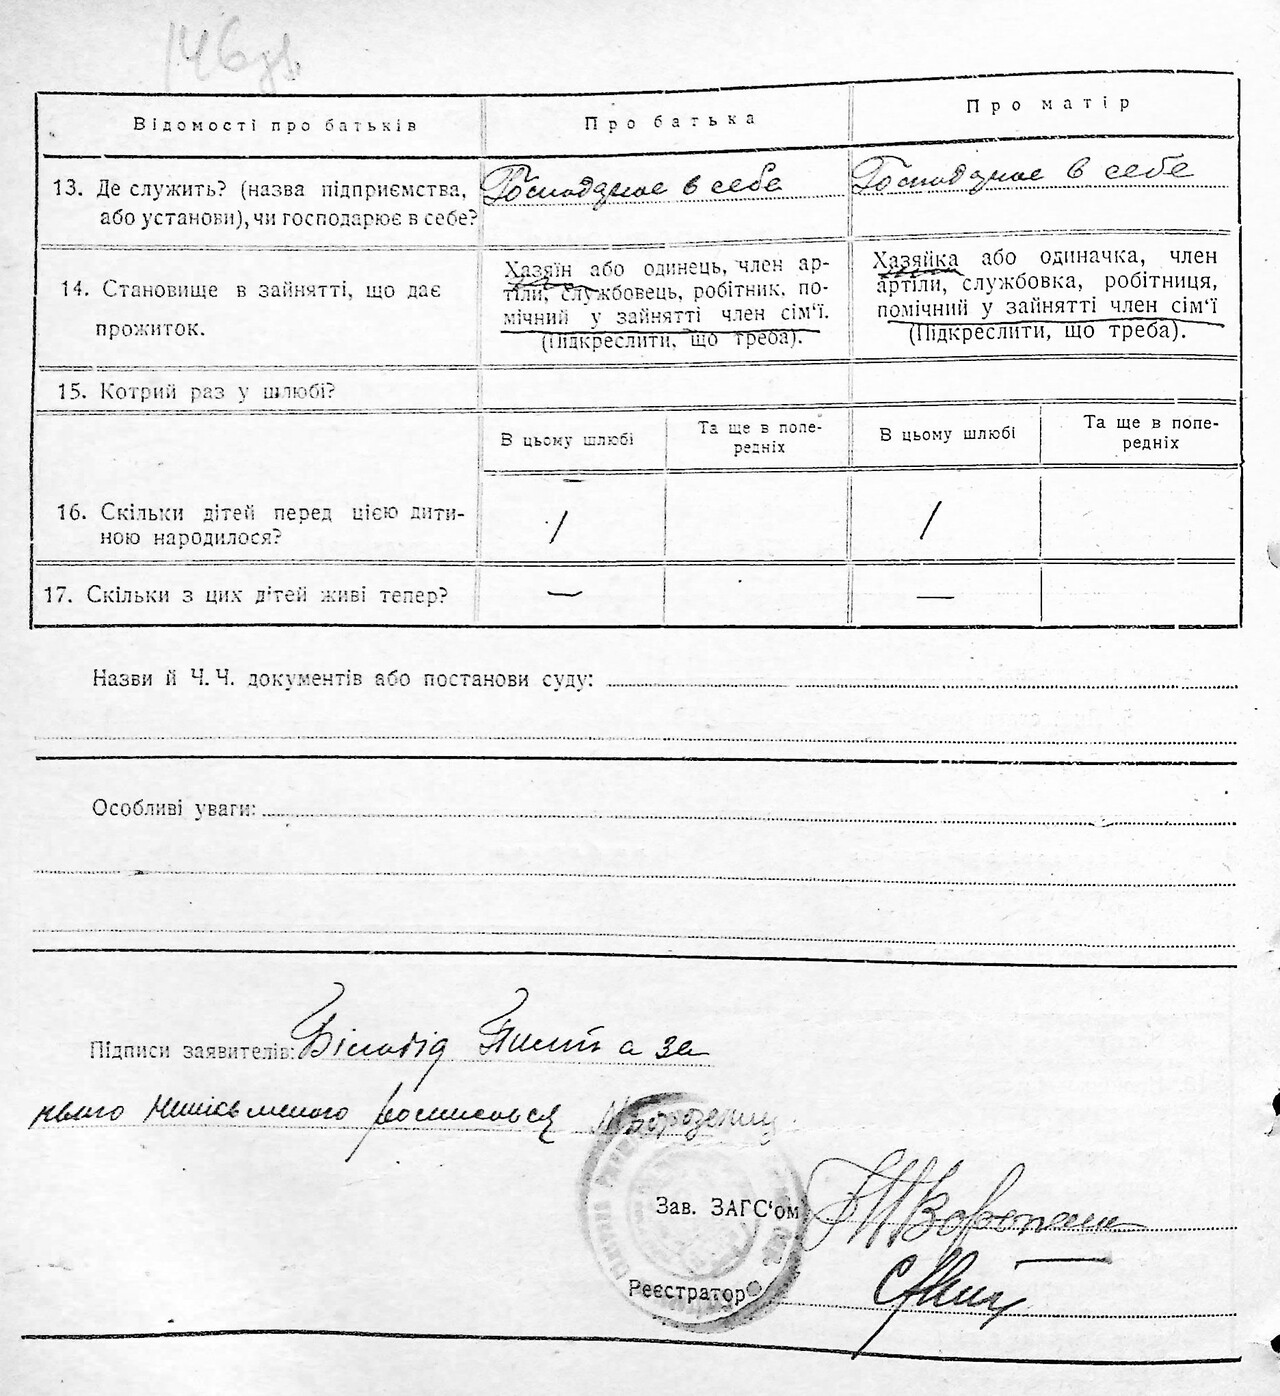 146
Відомості про батьків
Про батька
Про матір
13. Де служить? (назва підприємства,
або установи), чи господарює в себе?
Господарює в себе
Господарює в себе
14. Становище в зайнятті, що дає
прожиток.
Хазяїн або одинець, член ар-
тіли, службовець, робітник, по-
мічний у зайнятті член сім'ї.
(Підкреслити, що треба).
Хазяйка або одиначка, член
артіли, службовка, робітниця,
помічний у зайнятті член сім'ї
(Підкреслити, що треба).
15. Котрий раз у шлюбі?
В цьому шлюбі
Та ще в попе-
редніх
В цьому шлюбі
Та ще в попе-
редніх
16. Скільки дітей перед цією дити-
ною народилося?
1
1
17. Скільки з цих дітей живі тепер?
—
—
Назви й Ч. Ч. документів або постанови суду:
Особливі уваги:
Підписи заявителів: Білодід а за
росписався
Зав. ЗАГС'ом
Реєстратор